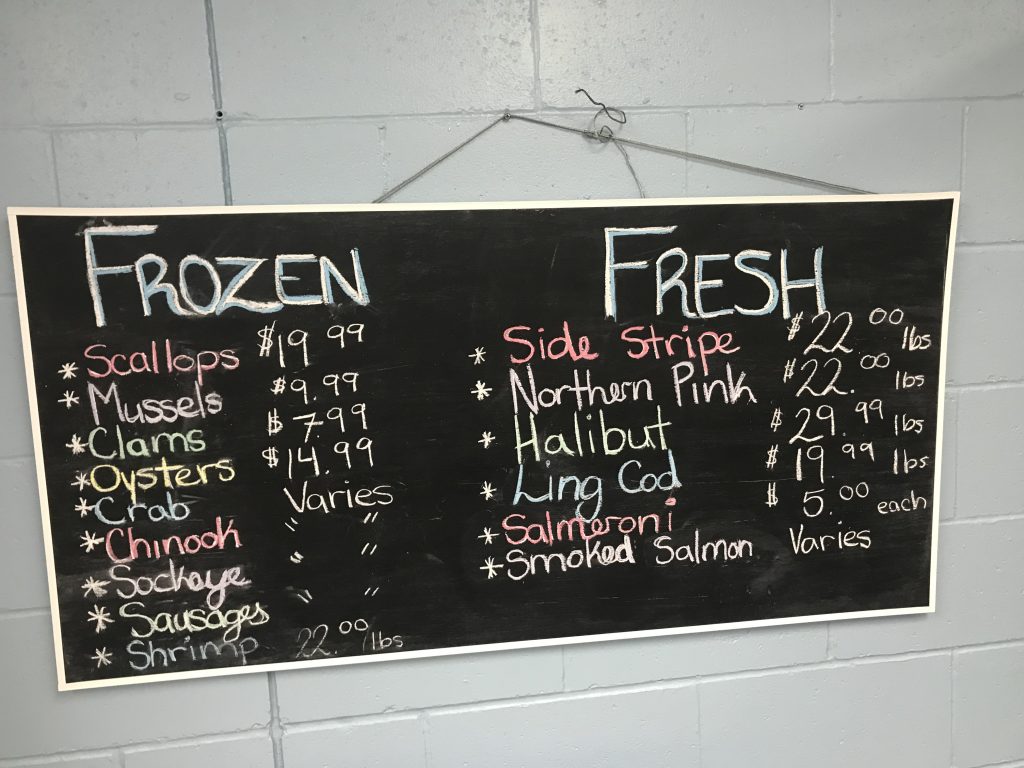 FROZEN
* Scallops $19.99
* Mussels $9.99
* Clams $7.99
* Oysters $14.99
* Crab Varies
* Chinook " "
* Sockeye " "
* Sausages " "
* Shrimp 22.00/lbs
FRESH
* Side Stripe $22.00 lbs
* Northern Pink $22.00 lbs
* Halibut $29.99 lbs
* Ling Cod $19.99 lbs
* Salmeroni $5.00 each
* Smoked Salmon Varies